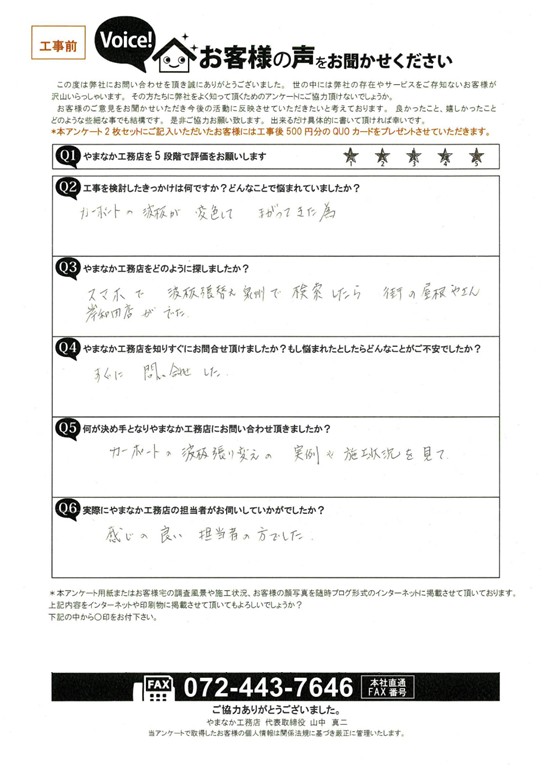 工事前
Voice!
お客様の声をお聞かせください
この度は弊社にお問い合わせを頂き誠にありがとうございました。 世の中には弊社の存在やサービスをご存知ないお客様が
沢山いらっしゃいます。 その方たちに弊社をよく知って頂くためのアンケートにご協力頂けないでしょうか。
お客様のご意見をお聞かせいただき今後の活動に反映させていただきたいと考えております。 良かったこと、嬉しかったこと
どのような些細な事でも結構です。 是非ご協力お願い致します。 出来るだけ具体的に書いて頂ければ幸いです。
*本アンケート2枚セットにご記入いただいたお客様には工事後500円分のQUOカードをプレゼントさせていただきます。
Q1 やまなか工務店を5段階で評価をお願いします
1 2 3 4 5
Q2 工事を検討したきっかけは何ですか?どんなことで悩まれていましたか?
カーポートの波板が 変色して まがってきた為
Q3 やまなか工務店をどのように探しましたか?
スマホで 波板張替え 泉州で 検索したら 街の屋根やさん
岸和田店がでた.
Q4 やまなか工務店を知りすぐにお問合せ頂けましたか?もし悩まれたとしたらどんなことがご不安でしたか?
すぐに 問い合せした.
Q5 何が決め手となりやまなか工務店にお問い合わせ頂きましたか?
カーポートの波板張り変えの 実例や 施工状況を見て.
Q6 実際にやまなか工務店の担当者がお伺いしていかがでしたか?
感じの良い 担当者の方でした.
*本アンケート用紙またはお客様宅の調査風景や施工状況、お客様の顔写真を随時ブログ形式のインターネットに掲載させて頂いております。
上記内容をインターネットや印刷物に掲載させて頂いてもよろしいでしょうか?
下記の中から〇印をお付下さい。
FAX 072-443-7646 本社直通
FAX番号
ご協力ありがとうございました。
やまなか工務店 代表取締役 山中 真二
当アンケートで取得したお客様の個人情報は関係法規に基づき厳正に管理いたします。